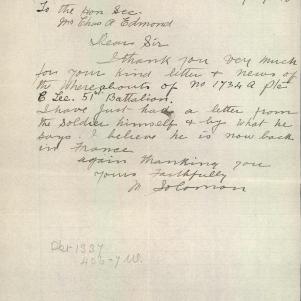 To the Hon Sec.
Mr Chas A Edmond
Dear Sir
I thank you very much
for your kind letter & news of
the whereabouts of No 1734 A Pte
B Sec. 51st Battalion.
I have just had a letter from
the Soldier himself & by what he
says. I believe he is now back
in France
again thanking you
Yours Faithfully
M Solomon